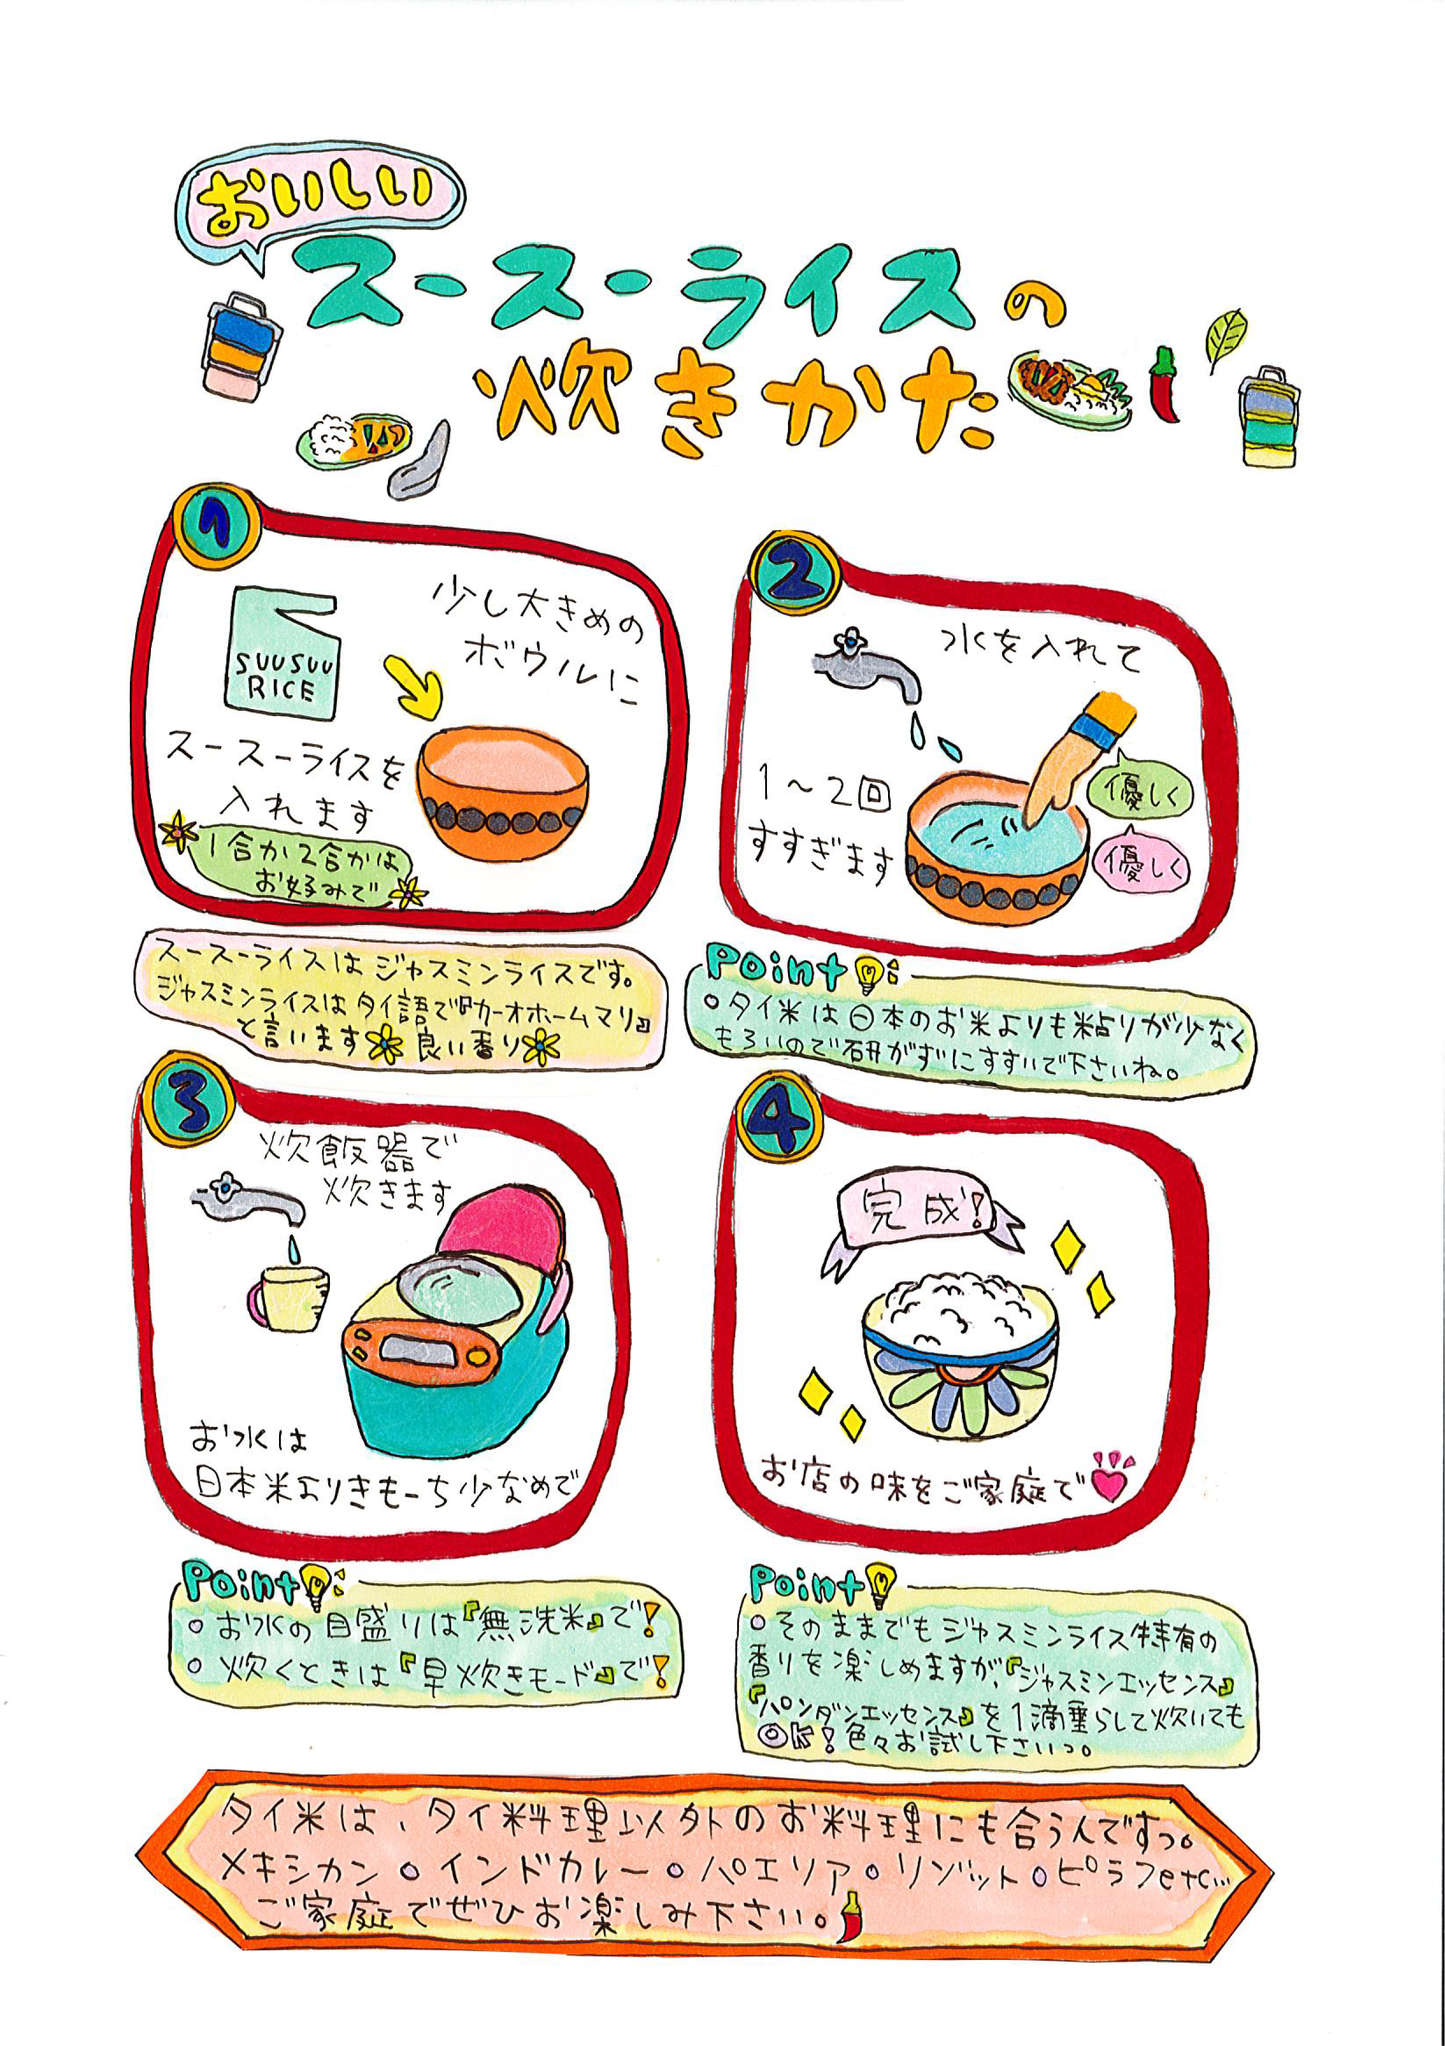 おいしい
スースーライスの
炊きかた
1
少し大きめの
ボウルに
SUUSUU
RICE
スースーライスを
入れます
1合か2合かは
お好みで
スースーライスはジャスミンライスです。
ジャスミンライスはタイ語で『カーオホームマリ』
と言います 良い香り
2
水を入れて
1〜2回
すすぎます
優しく
優しく
Point
・タイ米は日本のお米よりも粘りが少なく
もろいので研がずにすすいで下さいね。
3
炊飯器で
炊きます
お水は
日本米よりきもーち少なめで
Point
・お水の目盛りは『無洗米』で!
・炊くときは『早炊きモード』で!
4
完成!
お店の味をご家庭で
Point
・そのままでもジャスミンライス特有の
香りを楽しめますが、『ジャスミンエッセンス』
『パンダンエッセンス』を1滴垂らして炊いても
OK!色々お試し下さいっ。
タイ米は、タイ料理以外のお料理にも合うんですっ。
メキシカン・インドカレー・パエリア・リゾット・ピラフetc...
ご家庭でぜひお楽しみ下さい。